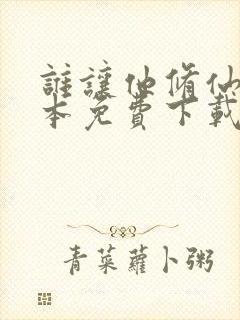 誰讓他脩仙
本免費下載
青菜蘿卜粥